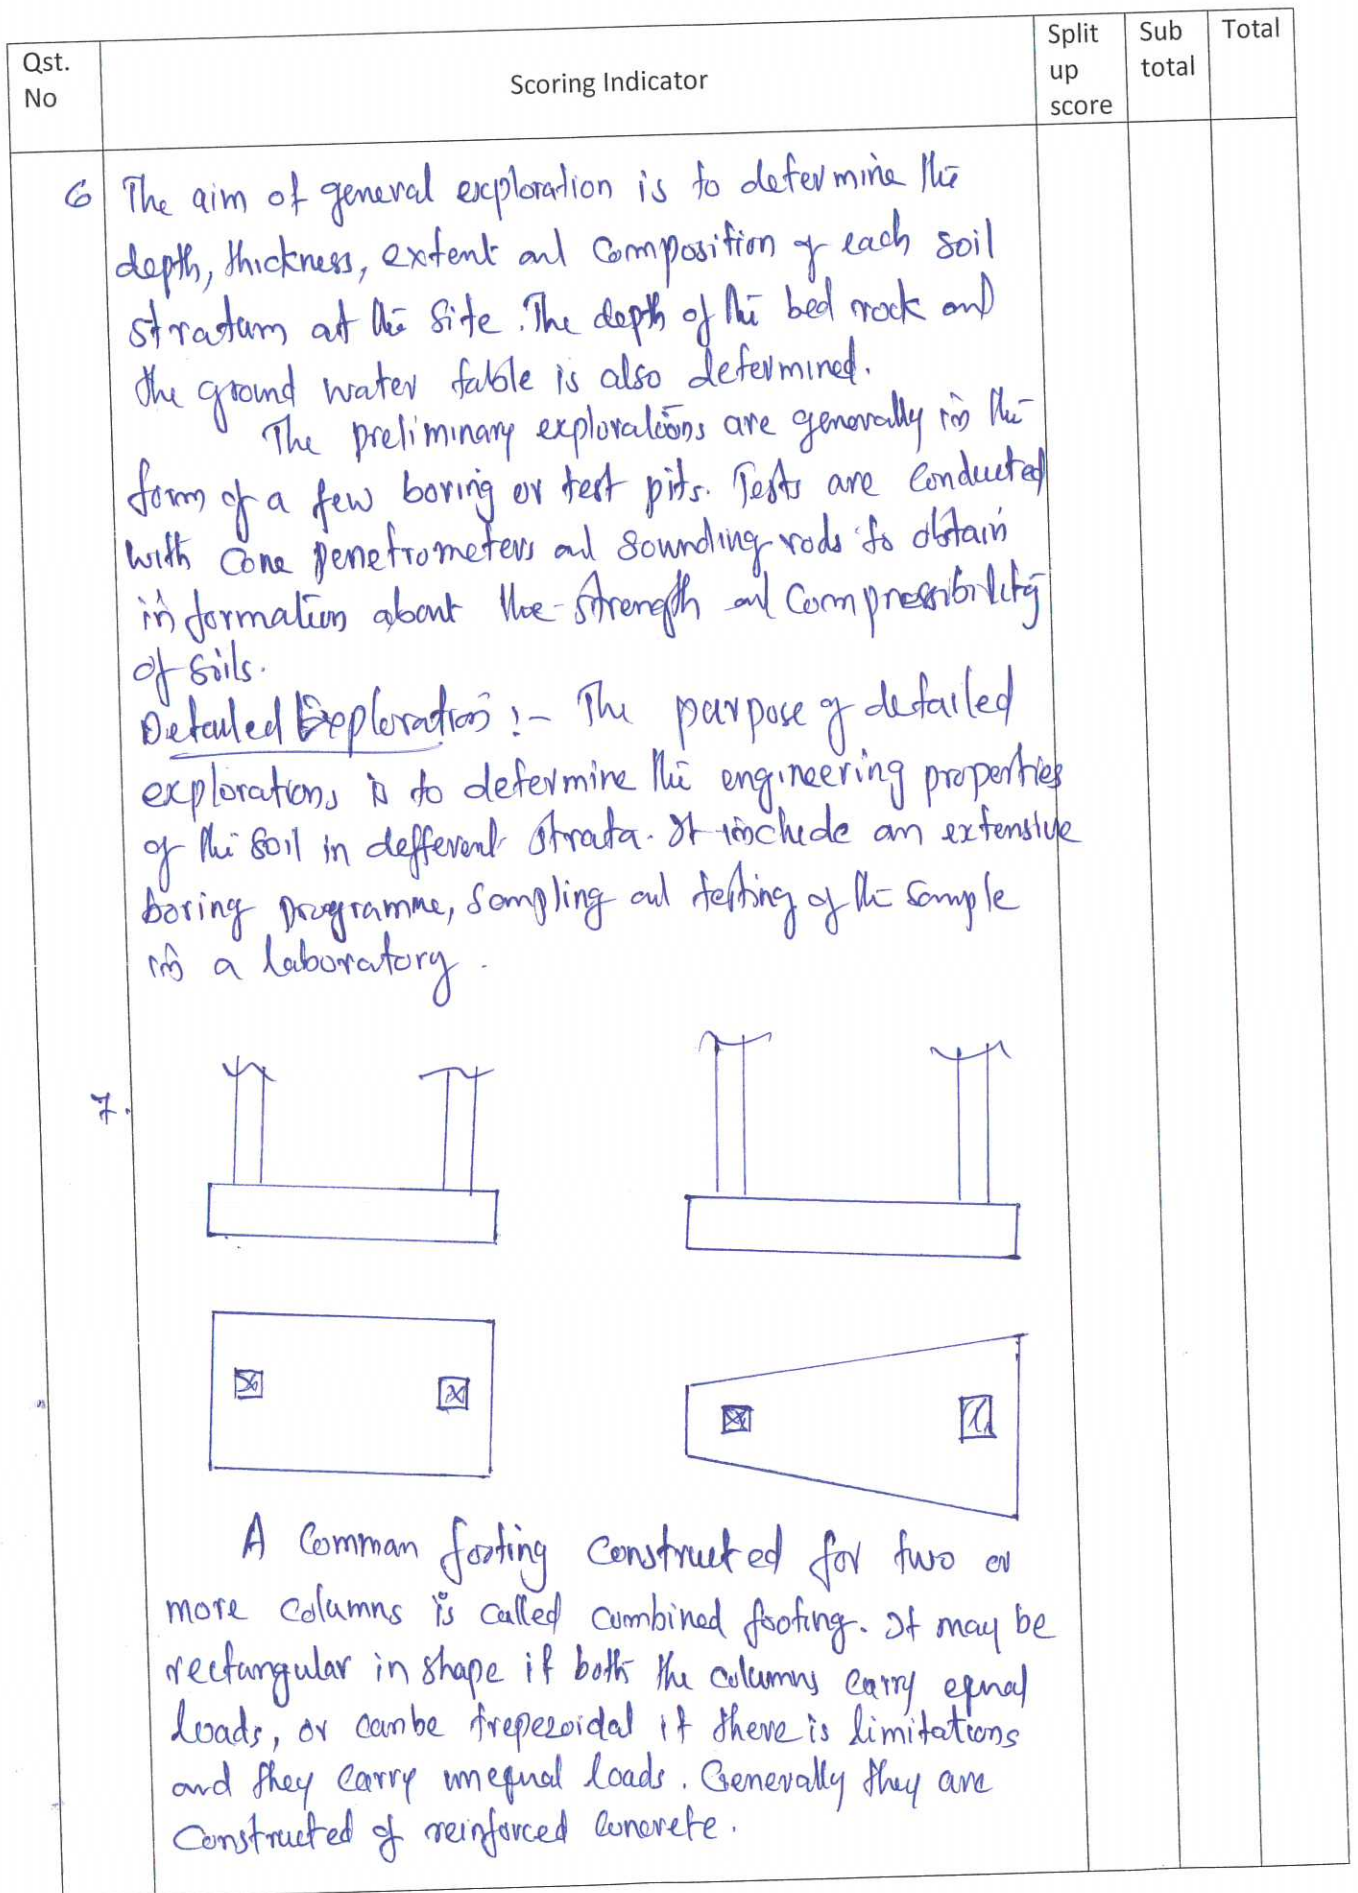 Qst. No
Scoring Indicator
Split up score
Sub total
Total
6
The aim of general exploration is to determine the
depth, thickness, extent and Composition of each soil
stratum at the site. The depth of the bed rock and
the ground water table is also determined.
The preliminary explorations are generally in the
form of a few boring or test pits. Tests are Conducted
with Cone penetrometers and Sounding rods to obtain
information about the strength and Compressibility
of Soils.
Detailed Exploration :- The purpose of detailed
explorations is to determine the engineering properties
of the Soil in defferent Strata. It include an extensive
boring programme, Sampling and testing of the Sample
in a laboratory.
7.
A Comman footing Constructed for two or
more Columns is Called Combined footing. It may be
rectangular in shape if both the Columns Carry equal
loads, or canbe trepezoidal if there is limitations
and they Carry unequal loads. Generally they are
Constructed of reinforced Concrete.